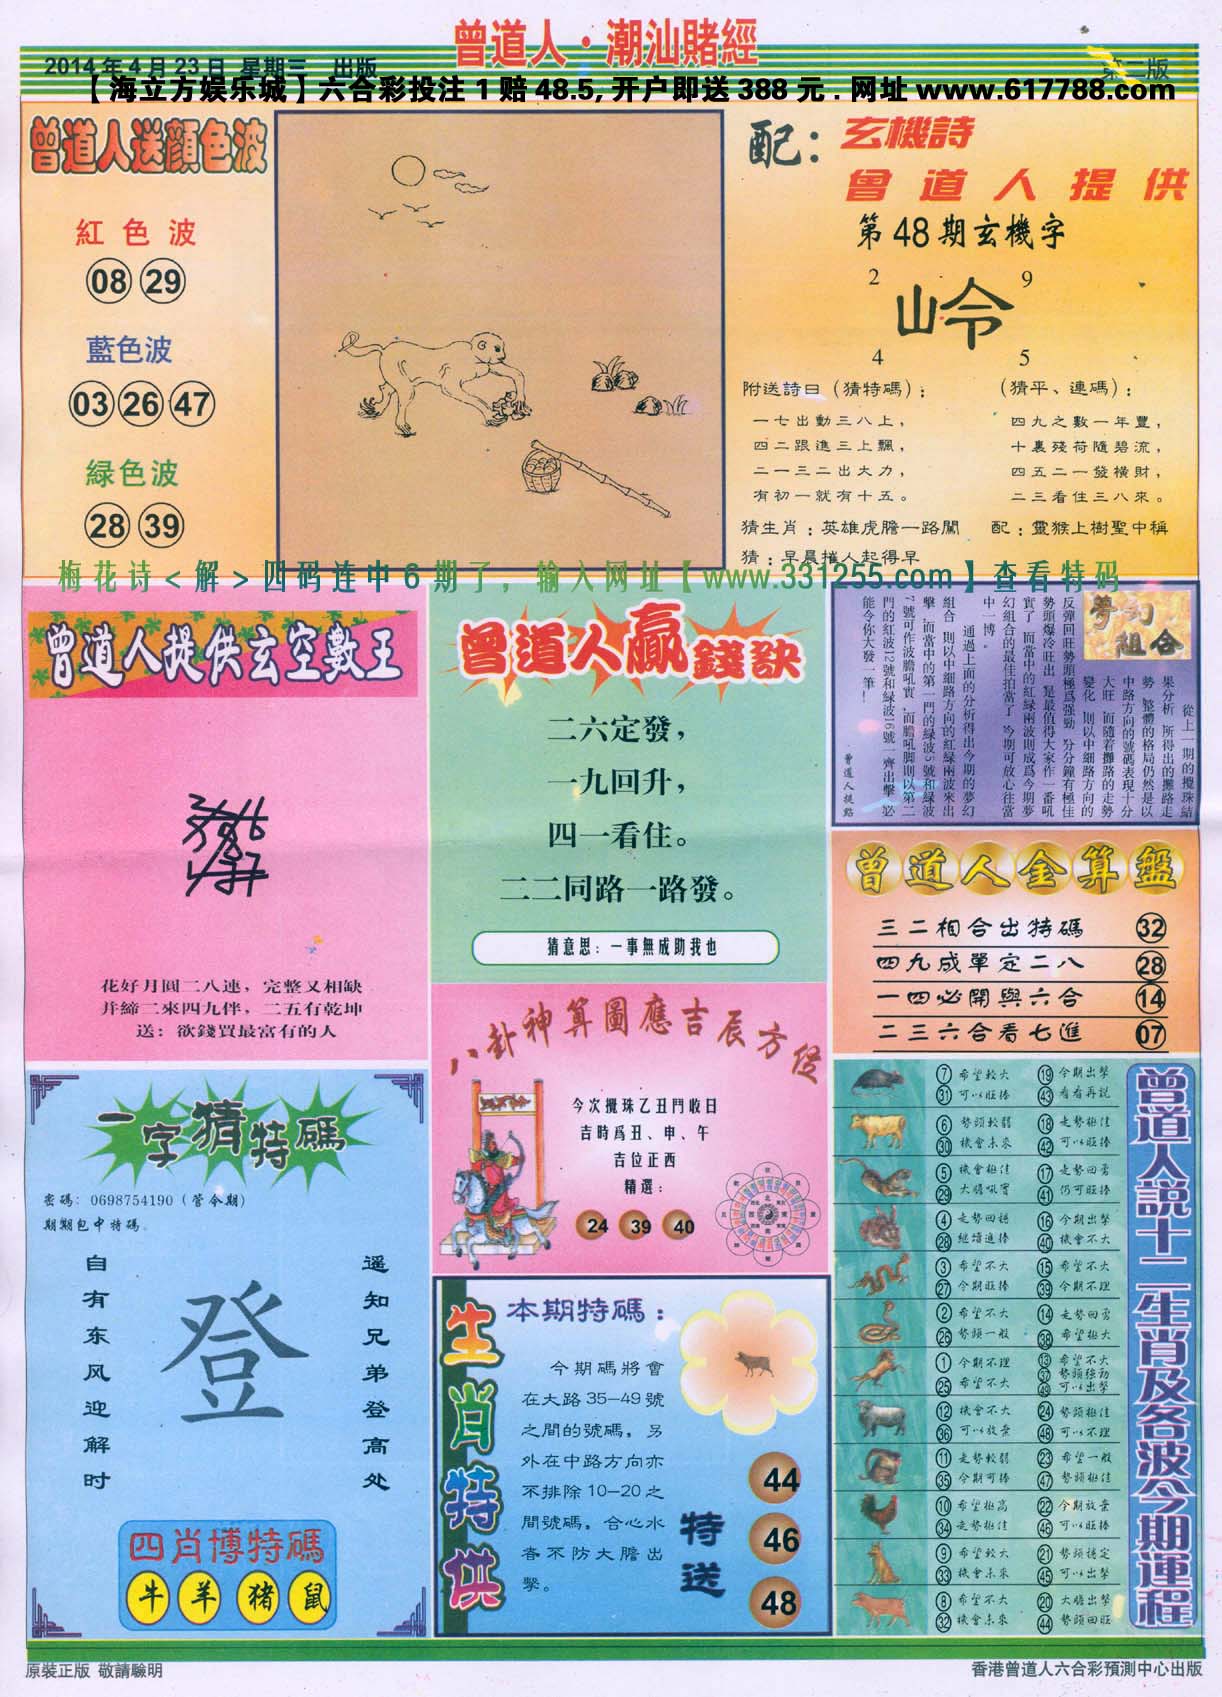 曾道人·潮汕賭經
2014年4月23日 星期三 出版
第二版
【海立方娱乐城】六合彩投注1赔48.5,开户即送388元.网址www.617788.com
曾道人送顏色波
紅色波
08 29
藍色波
03 26 47
緑色波
28 39
配：玄機詩
曾道人提供
第48期玄機字
2 9
岭
4 5
附送詩曰（猜特碼）：
一七出動三八上，
四二跟進三上飄，
二一三二出大力，
有初一就有十五。
（猜平、連碼）：
四九之數一年豐，
十裏殘荷隨碧流，
四五二一發橫財，
二三看住三八來。
猜生肖：英雄虎膽一路闖
配：靈猴上樹聖中稱
猜：早晨摧人起得早
梅花诗<解>四码连中6期了，输入网址【www.331255.com】查看特码
曾道人提供玄空數王
花好月圓二八連，完整又相缺
并締二來四九伴，二五有乾坤
送：欲錢買最富有的人
曾道人贏錢訣
二六定發，
一九回升，
四一看住。
二二同路一路發。
猜意思：一事無成助我也
夢幻組合
從上一期的攪珠結
果分析，所得出的攤路走
勢，整體的格局仍然是以
中路方向的號碼表現十分
大旺，而隨着攤路的走勢
變化，則以中細路方向的
反彈回旺勢頭極爲强勁，分分鐘有極佳
勢頭爆冷旺出，是最值得大家作一番吼
實了，而當中的紅緑兩波則成爲今期夢
幻組合的最佳拍當了，今期可放心往當
中一博。
通過上面的分析得出今期的夢幻
組合，則以中細路方向的紅緑兩波來出
擊，而當中的第一門的緑波5號和緑波
號可作波膽吼實，而膽吼脚則以第二
門的紅波12號和緑波16號一齊出擊，必
能令你大發一筆！
曾道人提點
曾道人金算盤
三二相合出特碼 32
四九成單定二八 28
一四必開與六合 14
二三六合看七進 07
八卦神算圖應吉辰方位
今次攪珠乙丑門收日
吉時爲丑、申、午
吉位正西
精選：
24 39 40
一字猜特碼
密碼：0698754190（管今期）
期期包中特碼。
自有东风迎解时
登
遥知兄弟登高处
四肖博特碼
牛 羊 猪 鼠
生肖特供
本期特碼：
今期碼將會
在大路35—49號
之間的號碼，另
外在中路方向亦
不排除10—20之
間號碼，合心水
者不防大膽出
擊。
特送
44
46
48
曾道人説十二生肖及各波今期運程
7 希望較大 19 今期出擊
31 可以旺捧 43 看看再説
6 勢頭較弱 18 走勢極佳
30 機會未來 42 可以旺捧
5 機會極佳 17 走勢回勇
29 大膽吼實 41 仍可旺捧
4 走勢回穩 16 今期出擊
28 繼續進捧 40 機會不大
3 希望不大 15 希望不大
27 今期旺捧 39 今期不理
2 希望不大 14 走勢回勇
26 勢頭一般 38 希望極大
1 今期不理 13 希望不大
37 勢頭强勁
25 希望不大 49 可以出擊
12 機會不大 24 勢頭極佳
36 可以放棄 48 可以不理
11 走勢較弱 23 希望一般
35 今期可捧 47 勢頭極佳
10 希望極高 22 今期放棄
34 走勢極佳 46 可以旺捧
9 希望較大 21 勢頭穩定
33 機會未來 45 可以出擊
8 希望不大 20 大膽出擊
32 機會未來 44 勢頭回旺
原裝正版 敬請驗明
香港曾道人六合彩預測中心出版